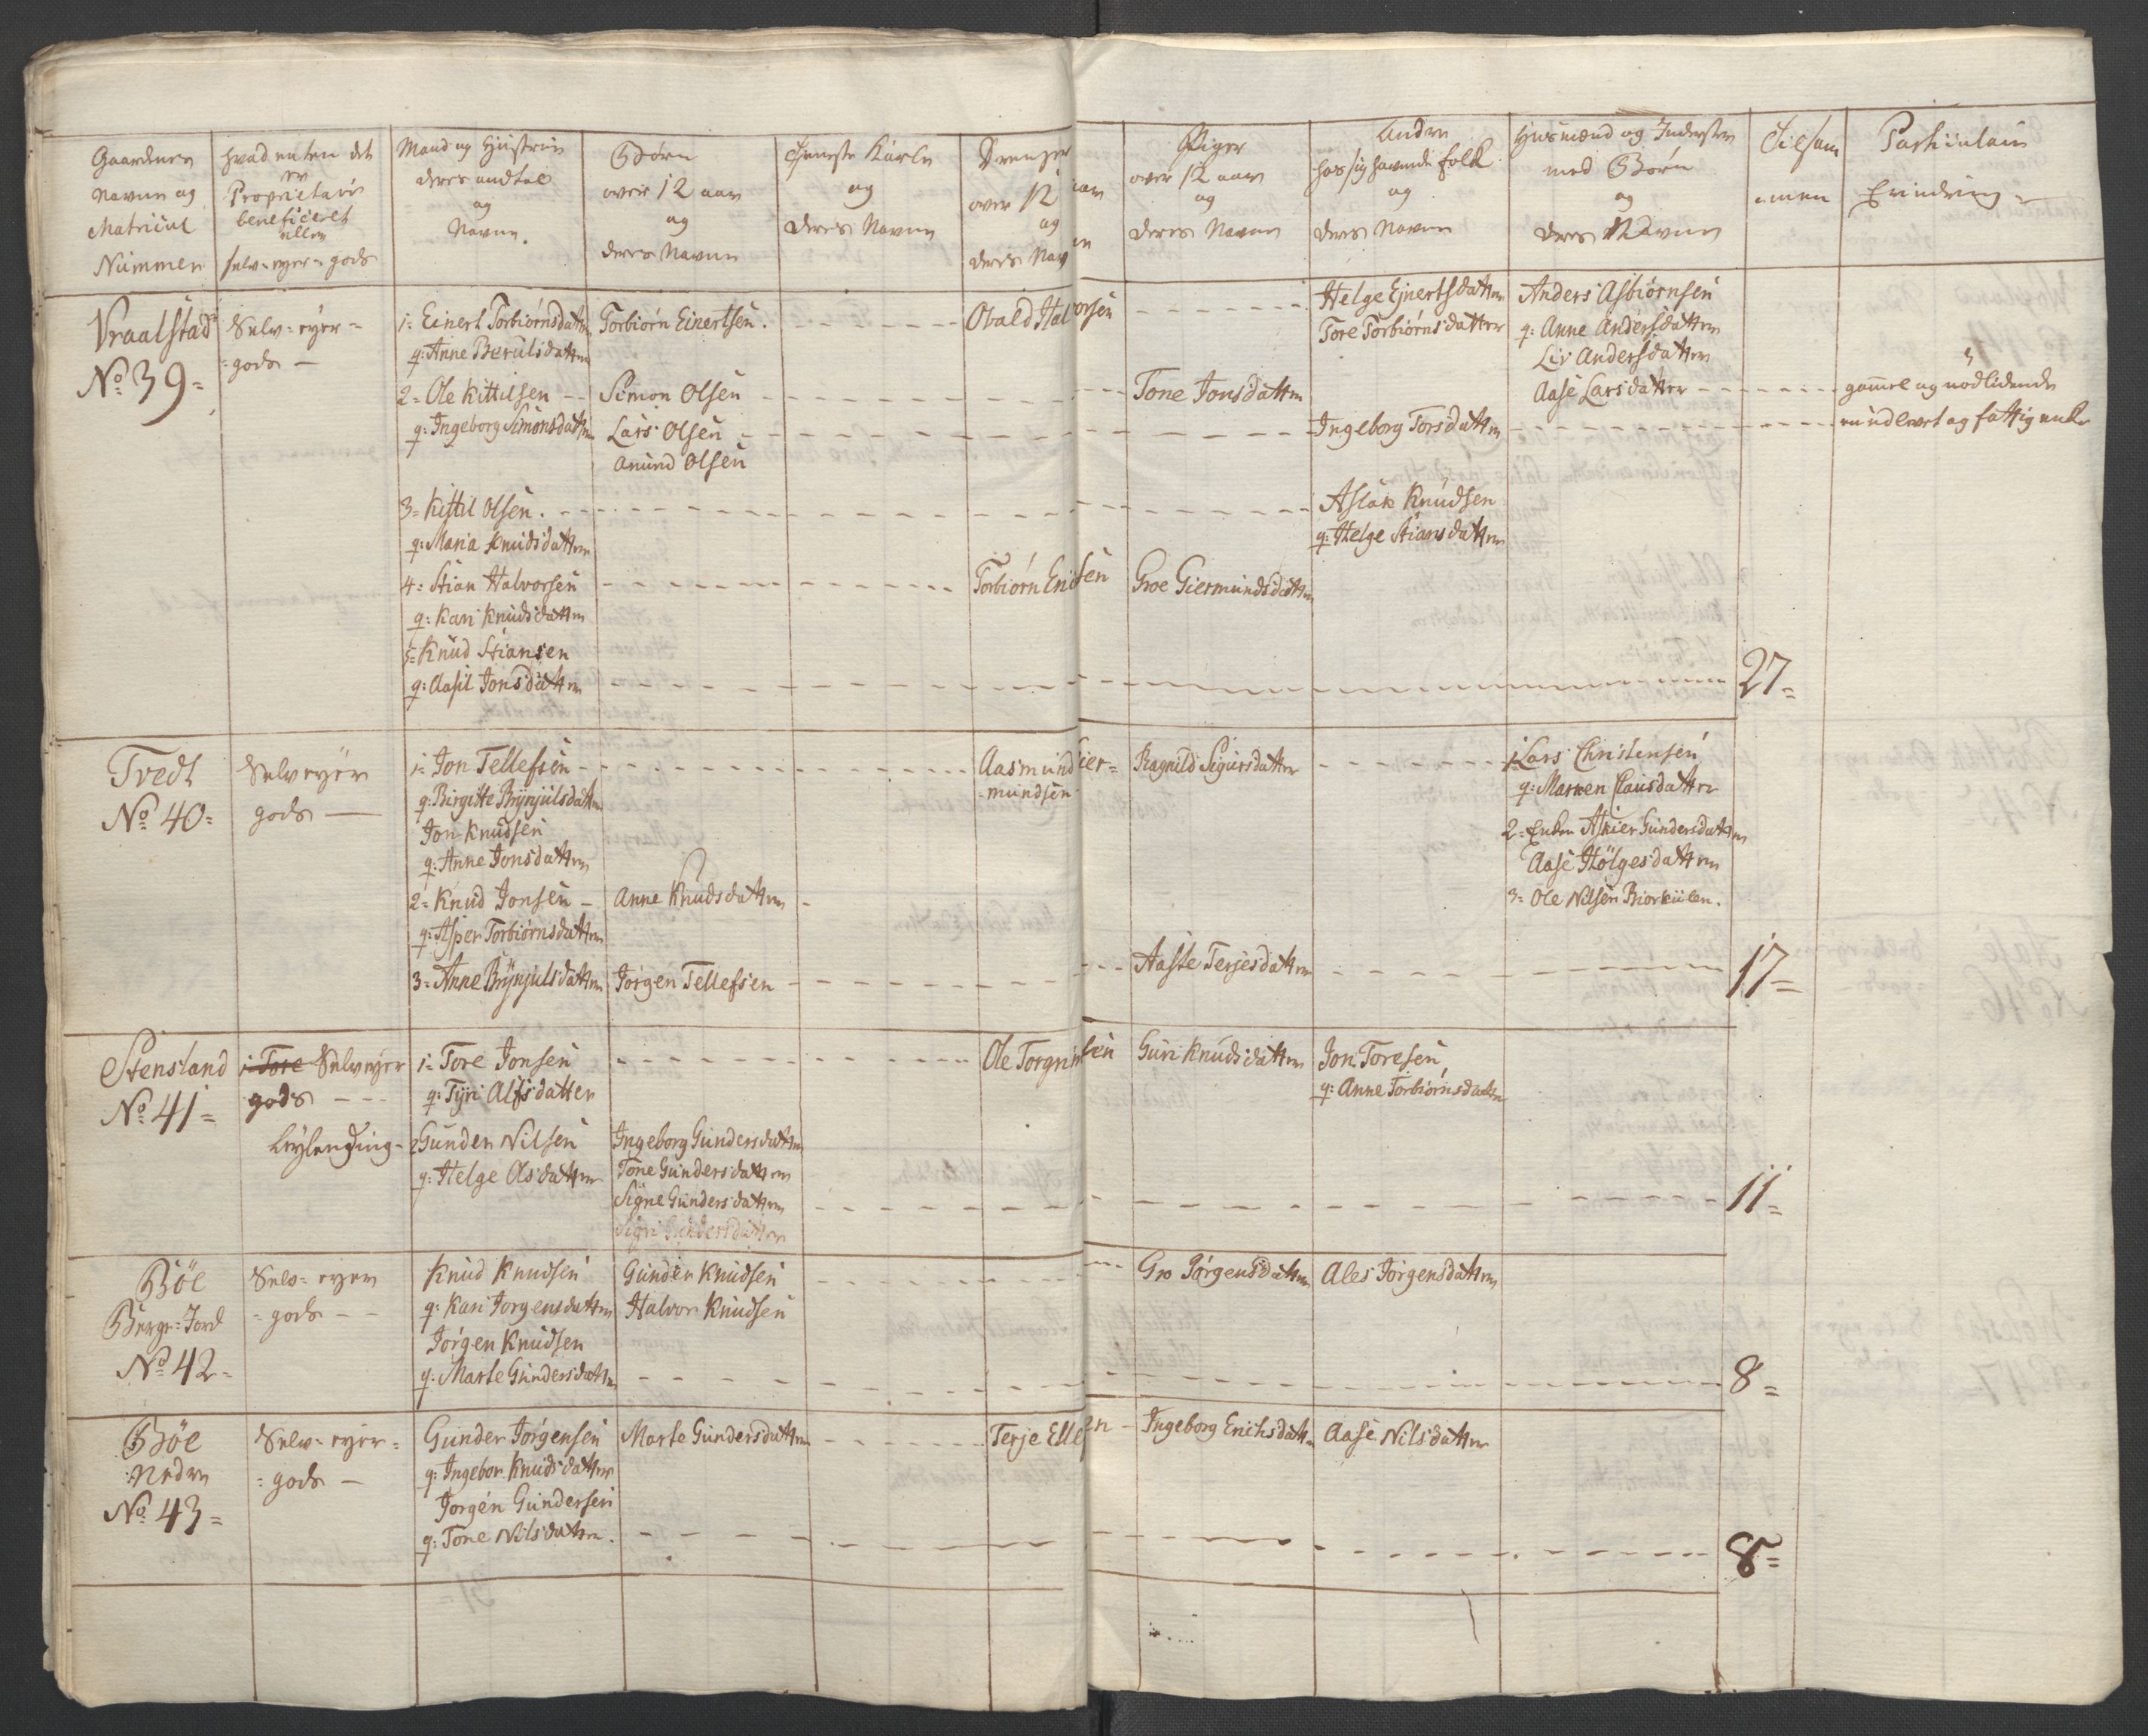 Gaardenes
Navne og
Matricul
Nummer
hvad enten det
er
Proprietair
beneficeret
eller
selv-eyer-gods
Mand og Hustrue
deres andtal
og
Navne.
Børn
over 12 aar
og
deres Navne
Tieneste Karle
og
deres Navne
Drenger
over 12 aar
og
deres Navn
Piger
over 12 aar
og
deres Navne
Andre
hos sig havende folk
og
deres Navne
Huusmænd og Inderster
med Børn
og
deres Navne
Tilsam
=men
Particulair
Erindring
Vraalstad
No 39=
Selv=eyer=
=gods —
1= Einert Torbiørnsdatter
q: Anne Berulsdatter
2= Ole Kittilsen
q: Ingeborg Simonsdatter
3= Kittil Olsen.
q: Maria Knudsdatter
4= Stian Halvorsen
q: Kari Knudsdatter
5= Knud Stiansen
q: Aasil Jonsdatter
Torbiørn Einertsen.
Simon Olsen
Lars Olsen
Anund Olsen
Ovald Halvorsen
Torbiørn Ericsen
Tone Jonsdatter
Groe Giermundsdatter
Helge Ejnertsdatter
Tore Torbiørnsdatter
Ingeborg Torsdatter
Aslak Knudsen
q: Helge Stiansdatter
Anders Asbiørnsen
q: Anne Andersdatter
Liv Andersdatter
Aase Larsdatter
gammel og nødlidende
en udlevet og fattig enke
27=
Tvedt
No 40=
Selveyer
gods —
1= Jon Tellefsen
q: Birgitte Brynjulsdatter
Jon Knudsen
q: Anne Jonsdatter
2= Knud Jonsen
q: Asper Torbiørnsdatter
3= Anne Brynjulsdatter
Anne Knudsdatter
Jørgen Tellefsen
Aasmund Gier=
=mundsen
Ragnild Sigursdatter
Aaste Terjesdatter
1= Lars Christensen
q: Maren Clausdatter
2= Enken Askier Gundersdatter
Aase Hölgesdatter
3= Ole Nilsen Biorkiilen.
17=
Stensland
No 41=
1= Tore Selveyer
gods
Leylending
1= Tore Jonsen
q: Tyri Alfsdatter
2 Gunder Nilsen
q: Helge Olsdatter
Ingeborg Gundersdatter
Tone Gundersdatter
Signe Gundersdatter
Sigri Gundersdatter
Ole Torgrimsen
Guri Knudsdatter
Jon Toresen
q: Anne Torbiørnsdatter
11=
Böe
Berge=Jord
No 42=
Selv=eyer
=gods
Knud Knudsen
q: Kari Jorgensdatter
Jørgen Knudsen
q: Marte Gundersdatter
Gunder Knudsen
Halvor Knudsen
Gro Jörgensdatter
Ales Jørgensdatter
8=
Böe
Nedre
No 43=
Selv=eyer=
=gods —
Gunder Jørgensen
q: Ingebor Knudsdatter
Jorgen Gundersen
q: Tone Nilsdatter.
Marte Gundersdatter
Terje Ellefsen
Ingeborg Erichsdatter
Aase Nilsdatter
8=